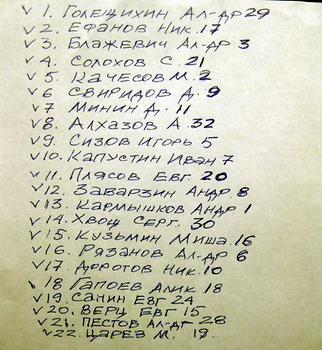 ✓ 1. Голещихин Ал-др 29
✓ 2. Ефанов Ник. 17
✓ 3. Блажевич Ал-др 3
✓ 4. Солохов С. 21
✓ 5. Качесов М. 2
✓ 6 Свиридов Д. 9
✓ 7. Минин Д. 11
✓ 8. Алхазов А. 32
✓ 9. Сизов Игорь 5
✓ 10. Капустин Иван 7
✓ 11. Плясов Евг. 20
✓ 12. Заварзин Андр 8
✓ 13. Кармышков Андр 1
✓ 14. Хвощ Серг. 30
✓ 15. Кузьмин Миша 16
✓ 16. Рязанов Ал-др 6
✓ 17. Доротов Ник. 10
✓ 18 Гапоев Алик 18
✓ 19. Санин Евг 24
✓ 20. Верц Евг 15
✓ 21. Пестов Ал-др 28
✓ 22. Царев М. 19.